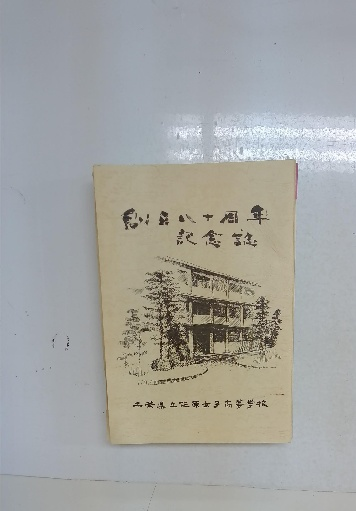 創立八十周年
記念誌
千葉県立佐原女子高等学校